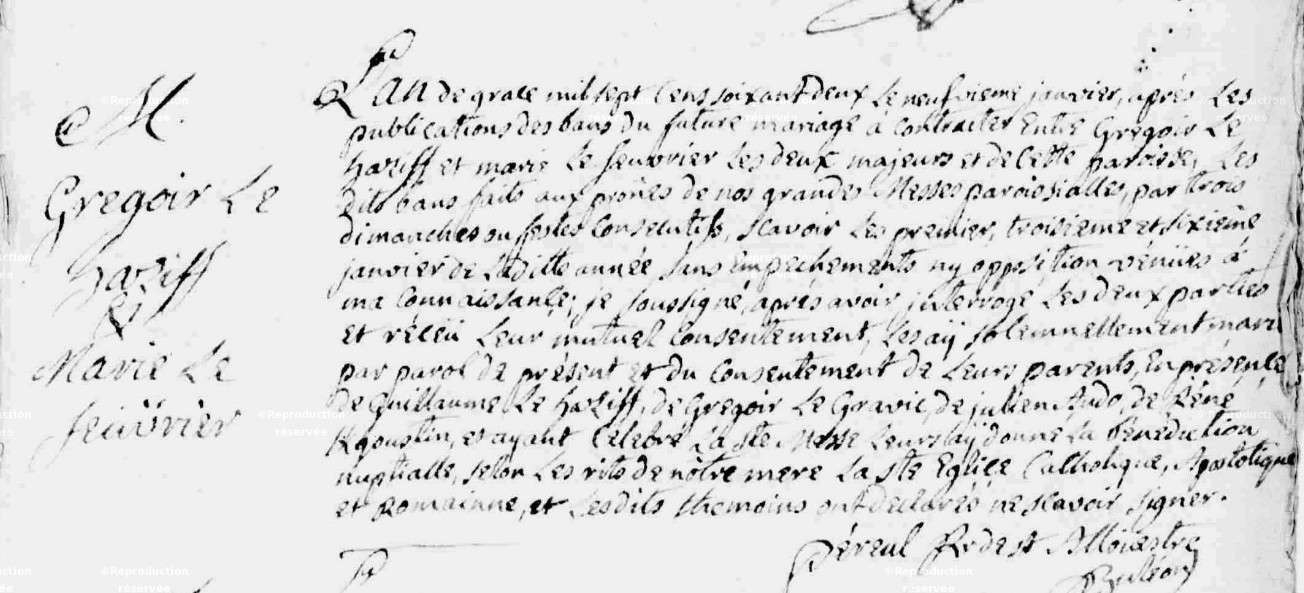 M.
Gregoir Le
haziff
Et
Marie Le
feuvrier
L'an de grace mil sept Cens soixant deux Le neufvieme janvier, après Les
publications des bans du future mariage à Contracter Entre Gregoir Le
haziff et marie Le feuvrier Les deux majeurs et de Cette paroisse, Les
dits bans faits aux prônes de nos grandes Messes paroissialles, par trois
dimanches ou festes Consecutifs, sçavoir Les premier, troisieme et sixieme
janvier de Laditte année sans Empechements ny opposition venües à
ma Connaissance; je soussigné, après avoir jnterrogé Les deux parties
et réceü Leur mutuel Consentement, Les aÿ solemnellement marié
par parol de présent et du Consentement de Leurs parents, En présence
de Guillaume Le haziff, de Gregoir Le Gravic, de julien Audo, de Réné
Kgoustin, et ayant Célébré La ste Messe Leurs aÿ donné La bénédiction
nuptialle, selon Les rits de nôtre mere La ste Eglise Catholique, Apostolique
et Romainne, et Lesdits themoins ont declarés ne sçavoir signer.
Alloüestre
Buléon
©Reproduction réservée